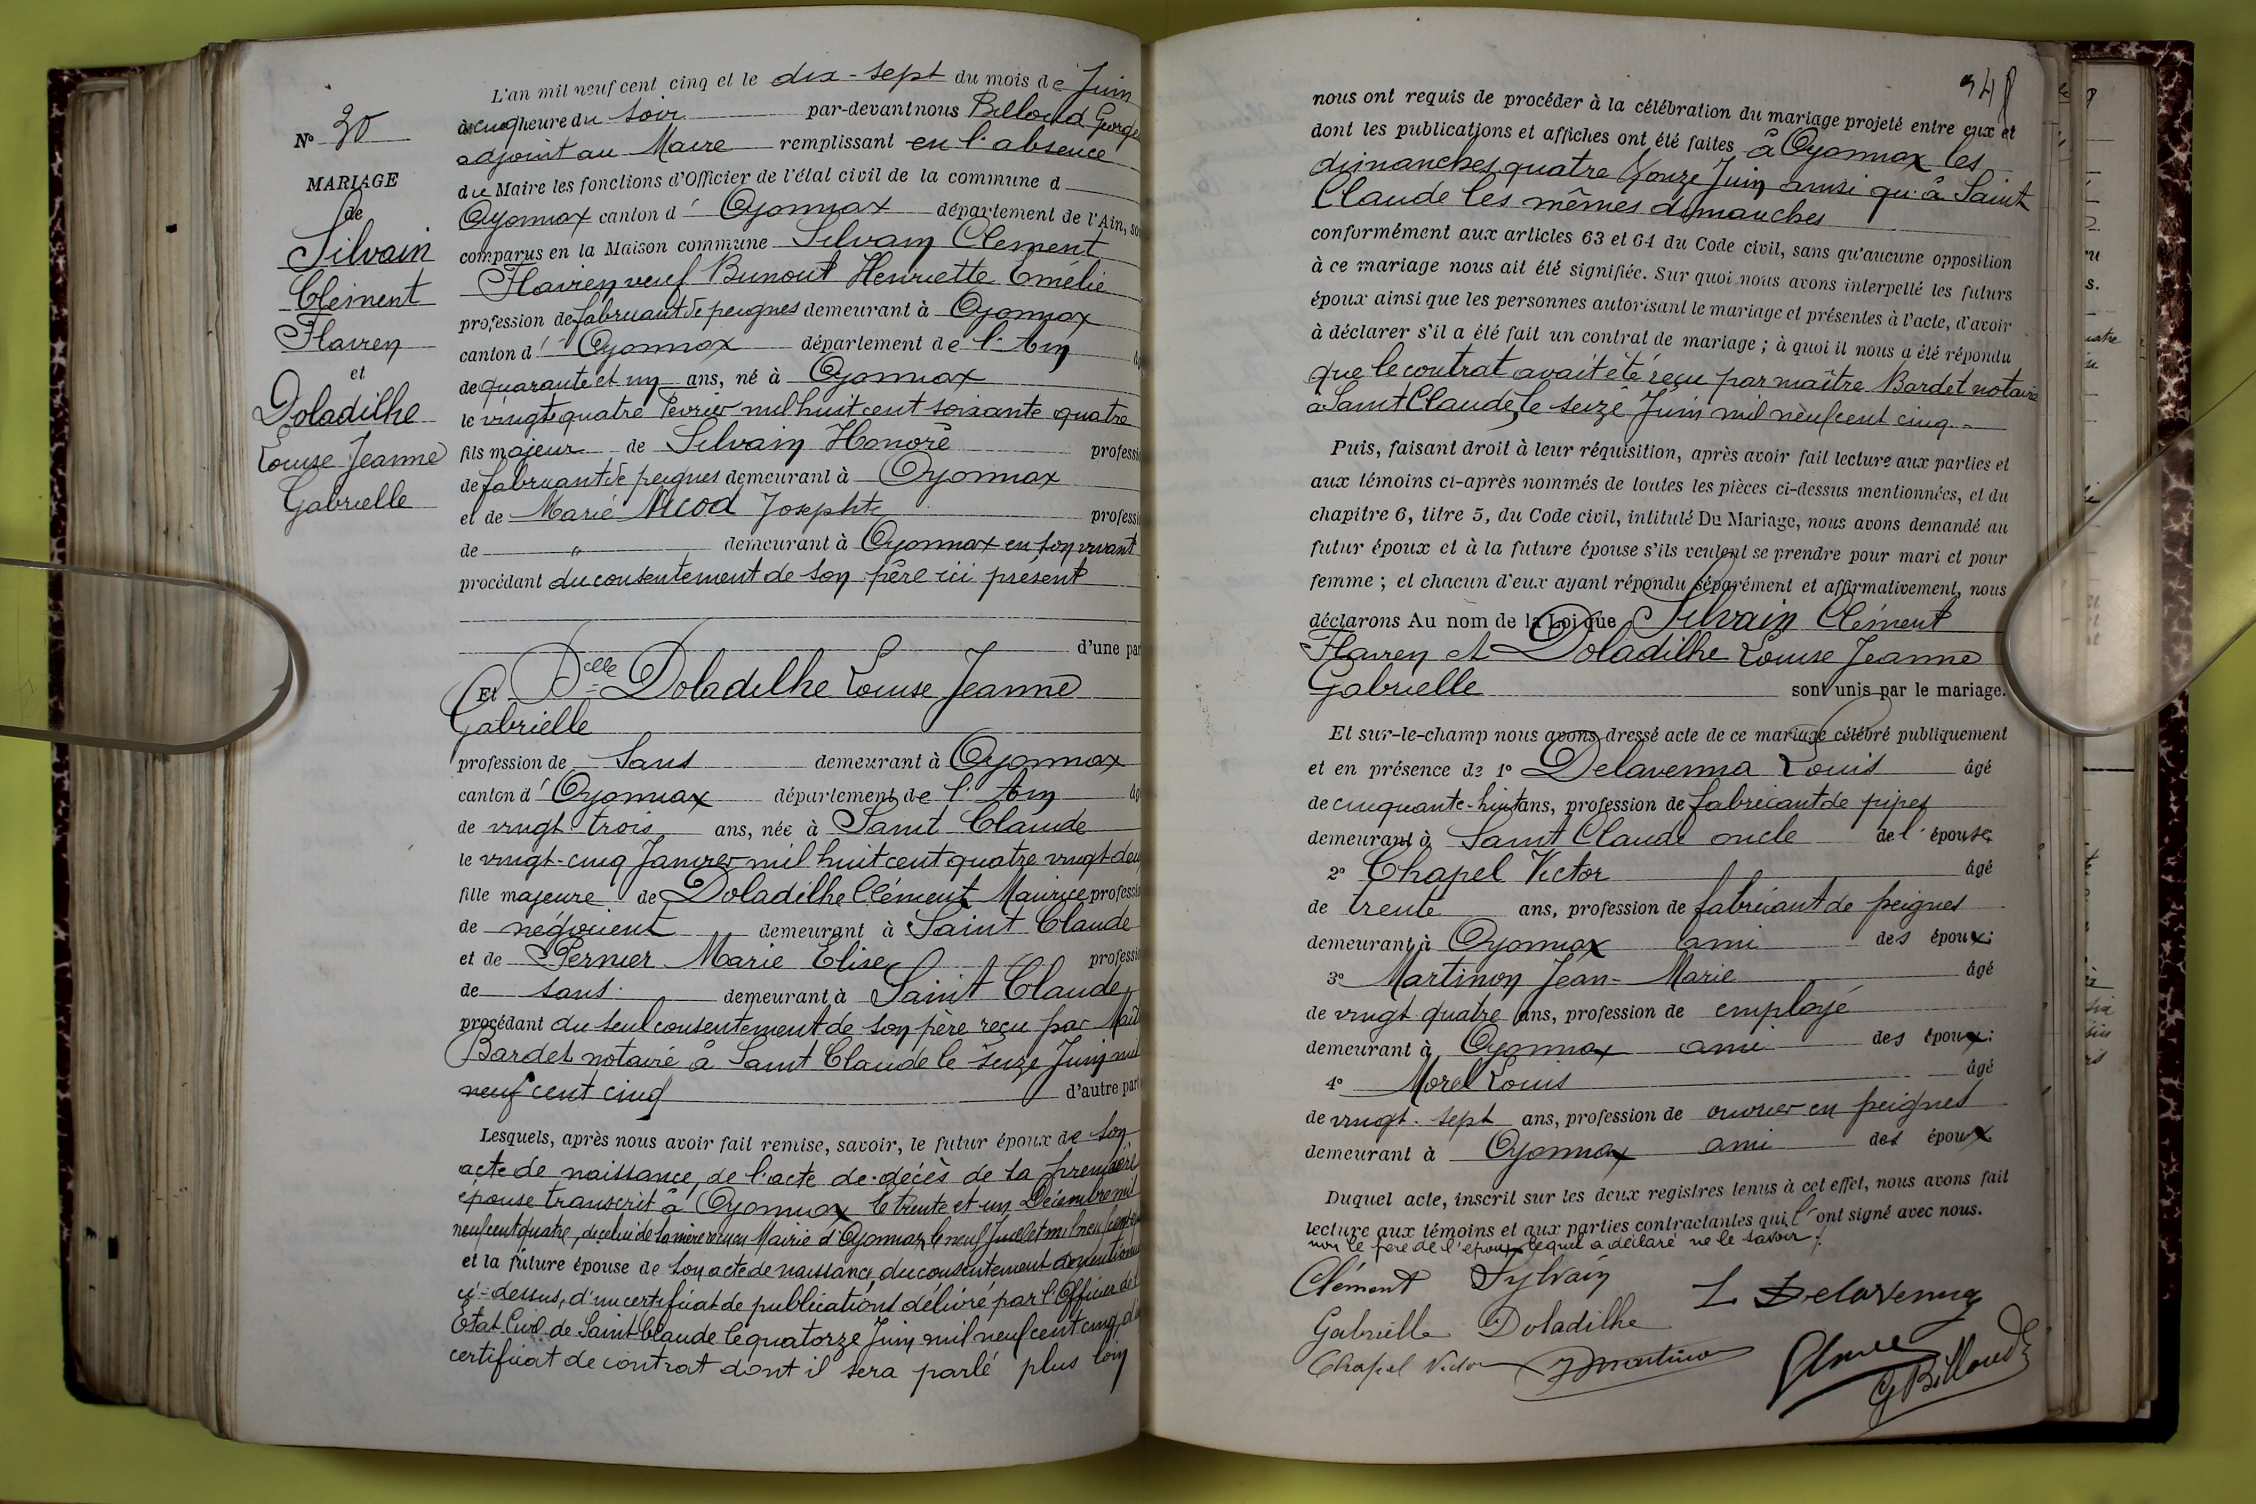 N° 30
MARIAGE
de
Silvain
Clément
Flavien
et
Doladilhe
Louise Jeanne
Gabrielle
L'an mil neuf cent cinq et le dix-sept du mois de Juin
à cinq heure du soir par-devant nous Billoud George
adjoint au Maire remplissant en l'absence
du Maire les fonctions d'Officier de l'état civil de la commune d
Oyonnax canton d' Oyonnax département de l'Ain, so
comparus en la Maison commune Silvain Clément
Flavien veuf Bunout Henriette Emelie
profession de fabricant de peignes demeurant à Oyonnax
canton d' Oyonnax département de l'Ain
de quarante et un ans, né à Oyonnax
le vingt quatre Février mil huit cent soixante quatre
fils majeur de Silvain Honoré professi
de fabricant de peignes demeurant à Oyonnax
et de Marie Nicod Josephte professi
de " demeurant à Oyonnax en son vivant
procédant du consentement de son père ici présent
d'une par
Et Delle Doladilhe Louise Jeanne
Gabrielle
profession de Sans demeurant à Oyonnax
canton d' Oyonnax département de l'Ain
de vingt trois ans, née à Saint Claude
le vingt-cinq Janvier mil huit cent quatre vingt-deux
fille majeure de Doladilhe Clément Maurice professi
de négocient demeurant à Saint Claude
et de Pernier Marie Elise professi
de sans demeurant à Saint Claude
procédant du seul consentement de son père reçu par Mait
Bardet notaire à Saint Claude le seize Juin mil
neuf cent cinq d'autre part
Lesquels, après nous avoir fait remise, savoir, le futur époux de son
acte de naissance, de l'acte de décès de la première
épouse transcrit à Oyonnax le trente et un Décembre mil
neuf cent quatre, de celui de sa mère Mairie d'Oyonnax le neuf Juillet mil neuf cent
et la future épouse de son acte de naissance, du consentement
ci-dessus, d'un certificat de publications délivré par l'Officier de l'
Etat Civil de Saint Claude le quatorze Juin mil neuf cent cinq, d'un
certificat de contrat dont il sera parlé plus loin
348
nous ont requis de procéder à la célébration du mariage projeté entre eux et
dont les publications et affiches ont été faites à Oyonnax les
dimanches quatre & onze Juin ainsi qu'à Saint
Claude les mêmes dimanches
conformément aux articles 63 et 64 du Code civil, sans qu'aucune opposition
à ce mariage nous ait été signifiée. Sur quoi nous avons interpellé les futurs
époux ainsi que les personnes autorisant le mariage et présentes à l'acte, d'avoir
à déclarer s'il a été fait un contrat de mariage ; à quoi il nous a été répondu
que le contrat avait été reçu par maître Bardet notaire
à Saint Claude, le seize Juin mil neuf cent cinq.
Puis, faisant droit à leur réquisition, après avoir fait lecture aux parties et
aux témoins ci-après nommés de toutes les pièces ci-dessus mentionnées, et du
chapitre 6, titre 5, du Code civil, intitulé Du Mariage, nous avons demandé au
futur époux et à la future épouse s'ils veulent se prendre pour mari et pour
femme ; et chacun d'eux ayant répondu séparément et affirmativement, nous
déclarons Au nom de la Loi que Silvain Clément
Flavien et Doladilhe Louise Jeanne
Gabrielle sont unis par le mariage.
Et sur-le-champ nous avons dressé acte de ce mariage célébré publiquement
et en présence de 1° Delavenna Louis âgé
de cinquante-huit ans, profession de fabricant de pipes
demeurant à Saint Claude oncle de l'épouse
2° Chapel Victor âgé
de trente ans, profession de fabricant de peignes
demeurant à Oyonnax ami des époux;
3° Martinon Jean-Marie âgé
de vingt quatre ans, profession de employé
demeurant à Oyonnax ami des époux;
4° Morel Louis âgé
de vingt-sept ans, profession de ouvrier en peignes
demeurant à Oyonnax ami des époux
Duquel acte, inscrit sur les deux registres tenus à cet effet, nous avons fait
lecture aux témoins et aux parties contractantes qui l'ont signé avec nous.
non le père de l'époux lequel a déclaré ne le savoir.
Clément Sylvain L Delavenna
Gabrielle Doladilhe
Chapel Victor J Martinon
G Billoud